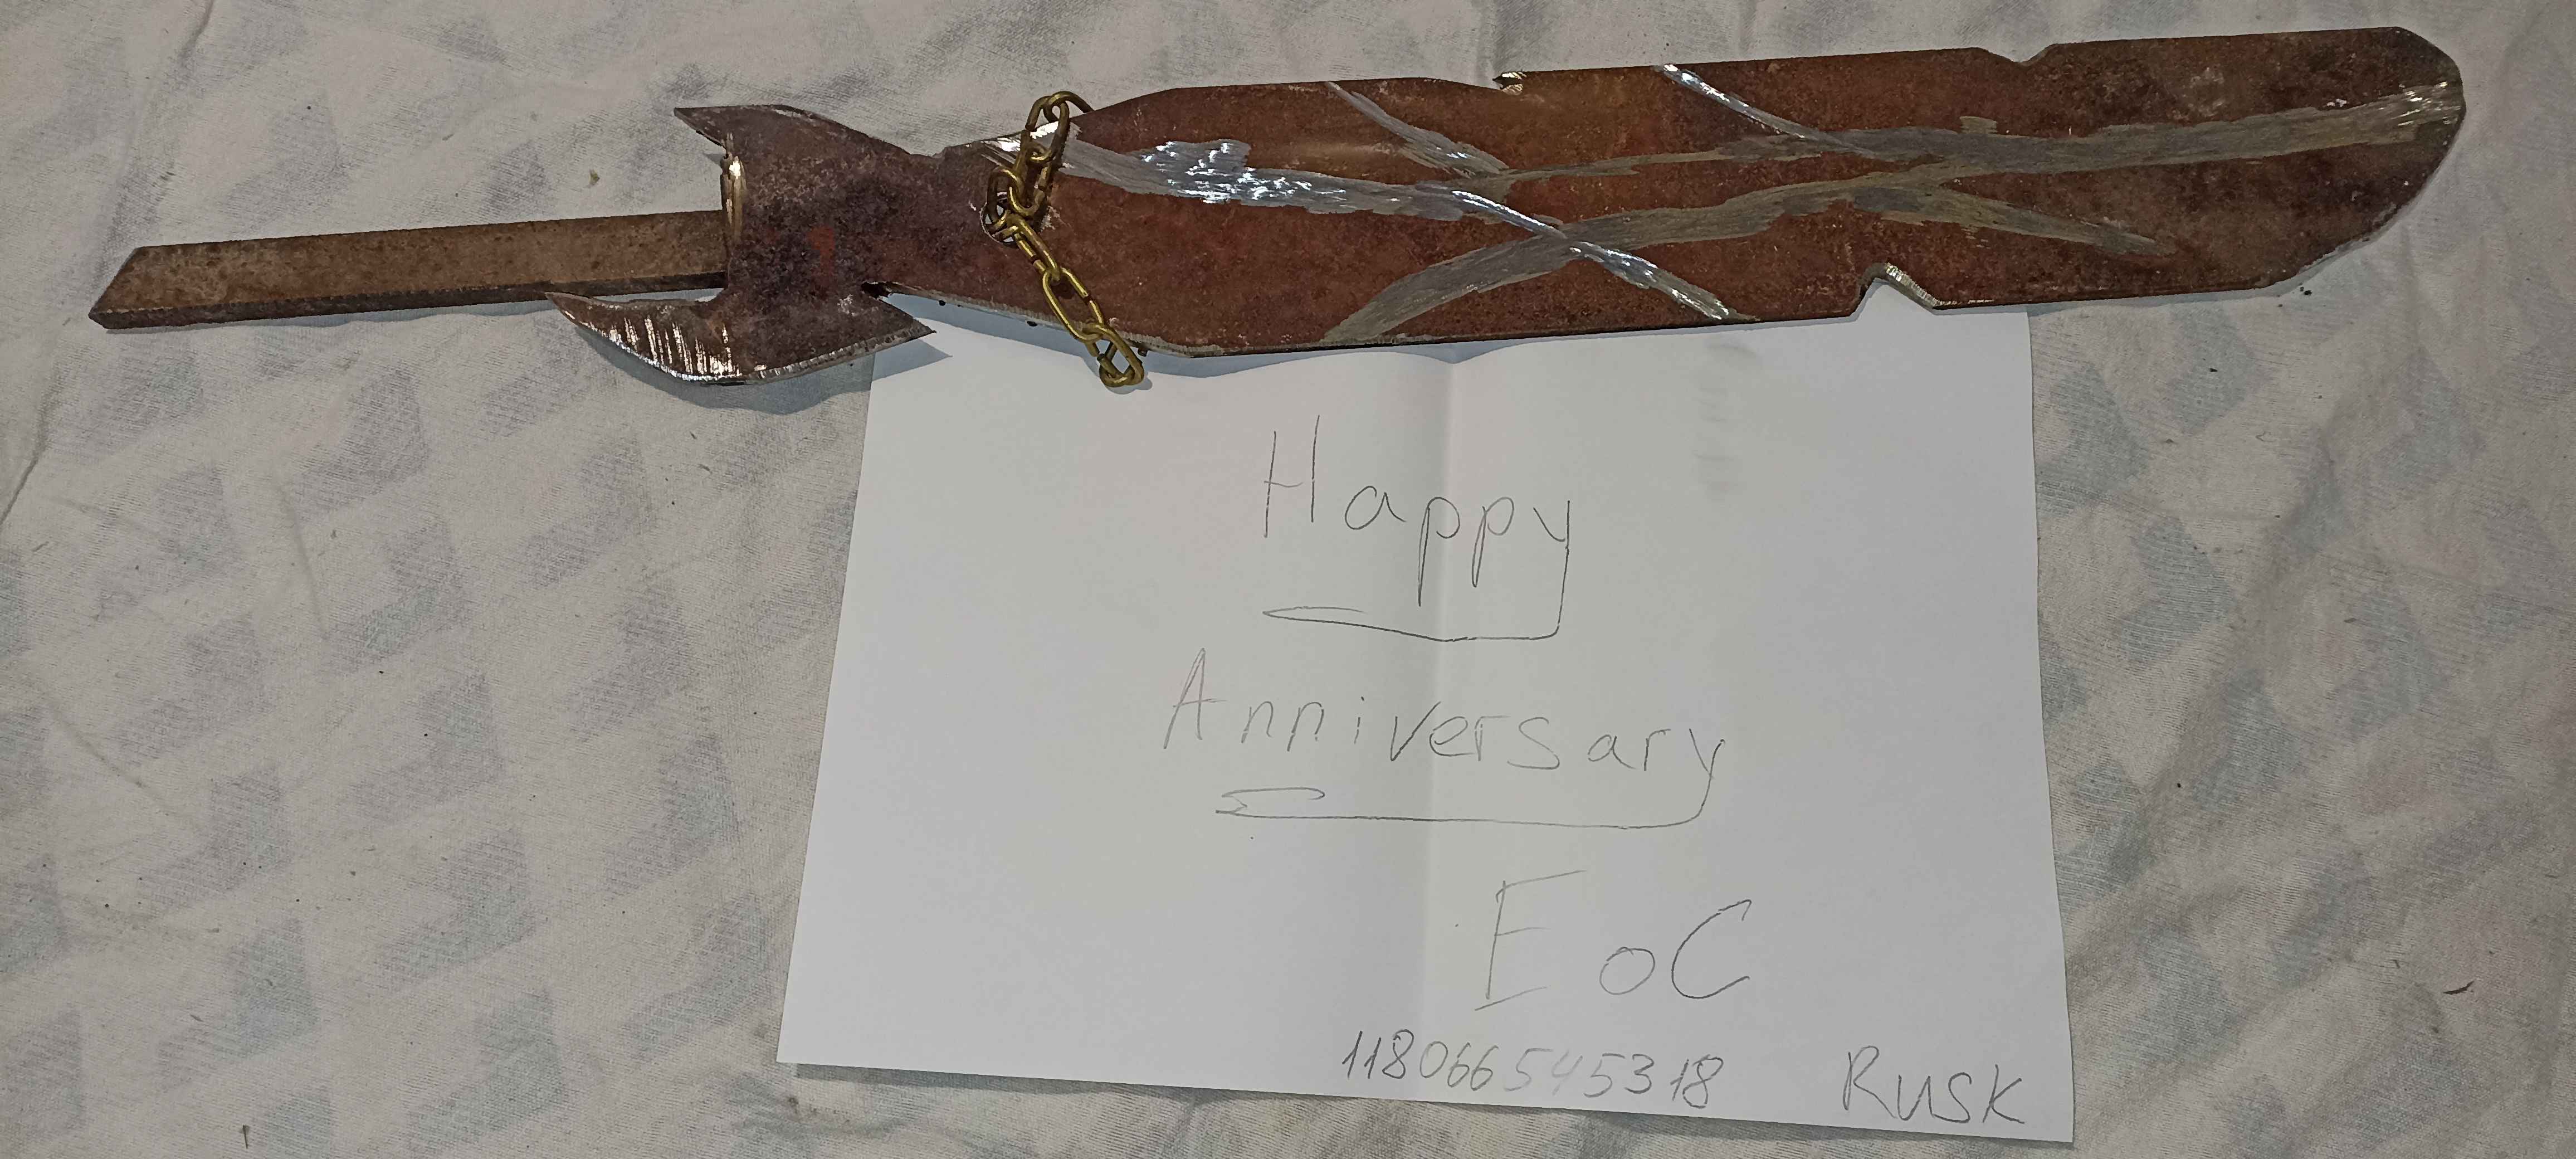 Happy
Anniversary
EoC
118066545318 Rusk